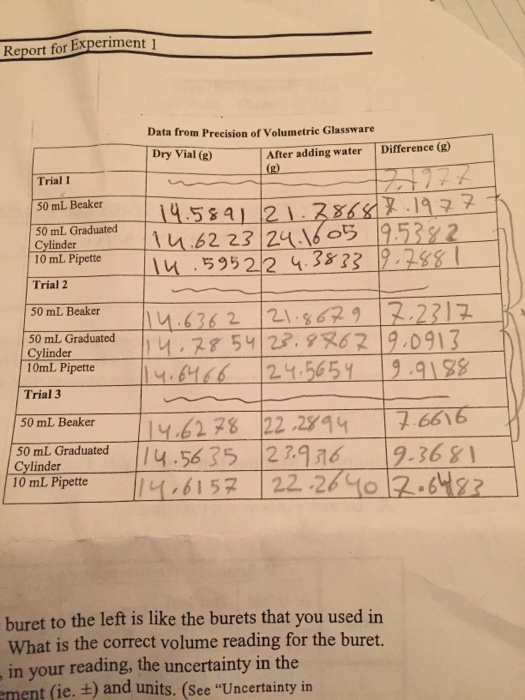 Report for Experiment 1
Data from Precision of Volumetric Glassware
Dry Vial (g) After adding water (g) Difference (g)
Trial 1 7.1977
50 mL Beaker 14.5891 21.7868 7.1977
50 mL Graduated Cylinder 14.6223 24.1605 9.5382
10 mL Pipette 14.5952 24.3833 9.7881
Trial 2
50 mL Beaker 14.6362 21.8679 7.2317
50 mL Graduated Cylinder 14.7854 23.8767 9.0913
10mL Pipette 14.6466 24.5654 9.9188
Trial 3
50 mL Beaker 14.6278 22.2894 7.6616
50 mL Graduated Cylinder 14.5635 9.3681
10 mL Pipette 14.6157 22.2640 7.6483
buret to the left is like the burets that you used in
What is the correct volume reading for the buret.
in your reading, the uncertainty in the
ement (ie. ±) and units. (See "Uncertainty in